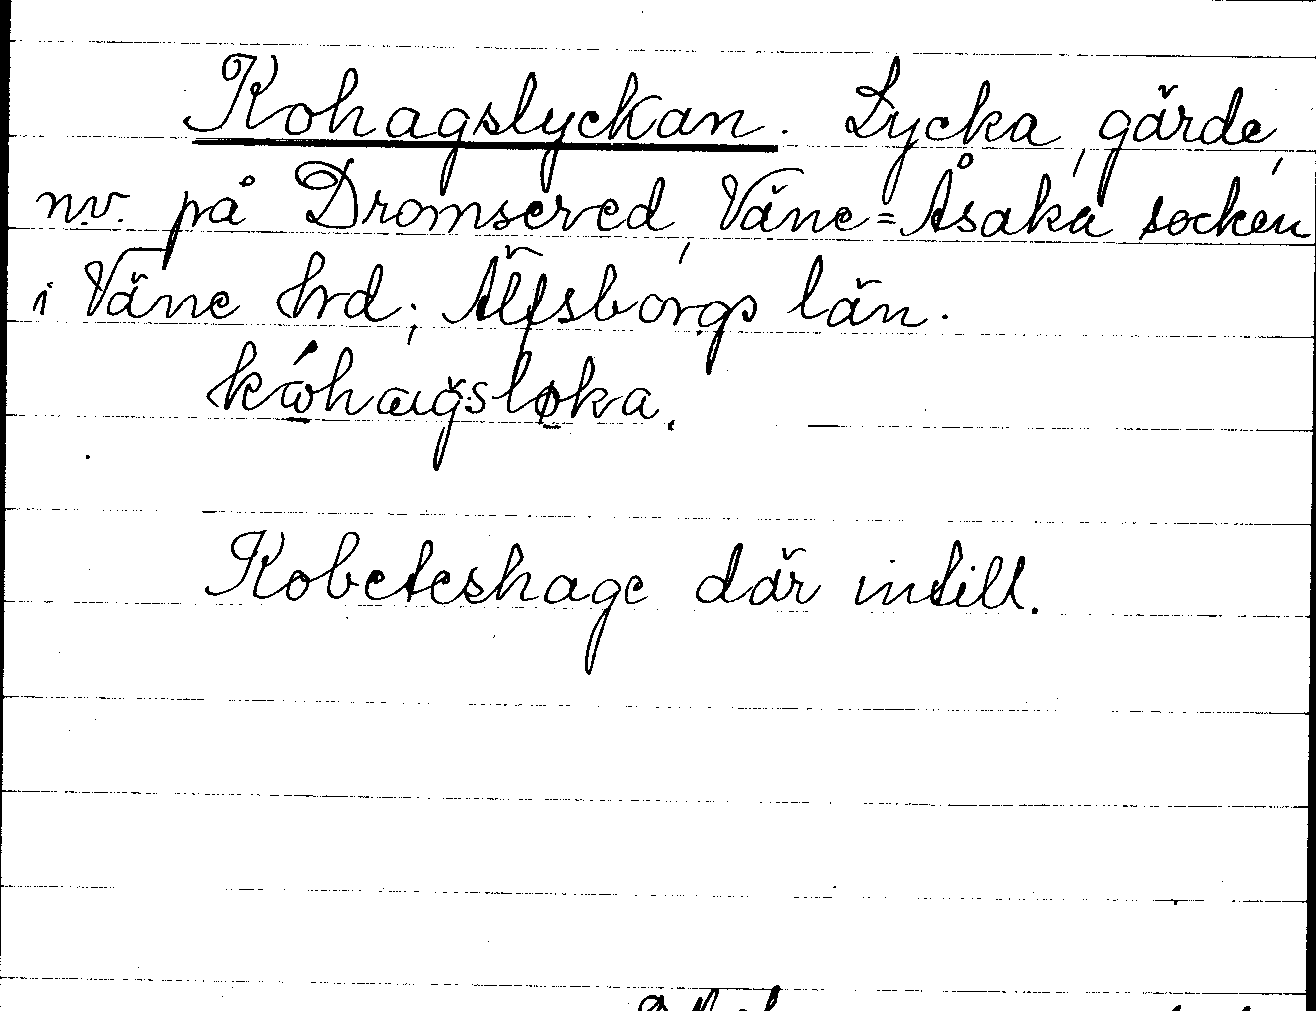 Kohagslyckan. Lycka, gärde,
nv. på Dromsered, Väne=Åsaka socken
i Väne hrd; Älfsborgs län.
kώ̲hagsløka.
Kobeteshage där intill.